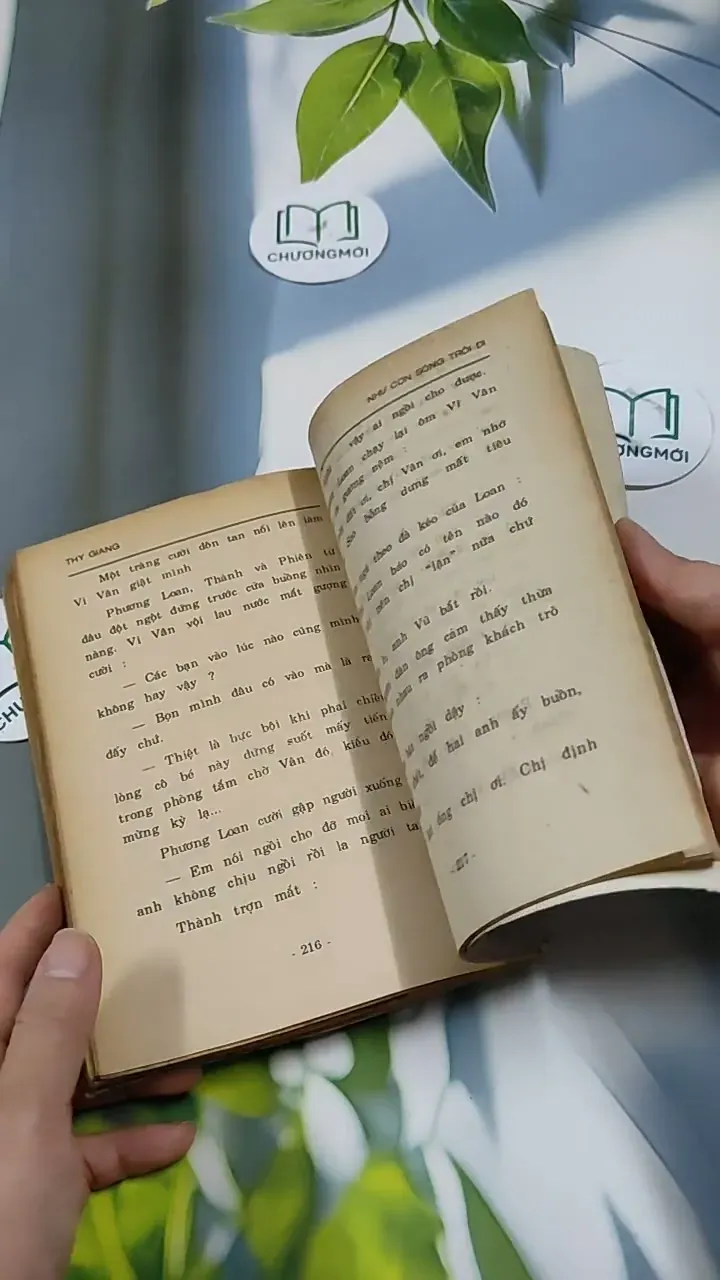 CHƯƠNGMỚI
THY GIANG
Một tràng cười dòn tan nổi lên làm
Vi Vân giật mình
Phương Loan, Thành và Phiên từ
đâu đột ngột đứng trước cửa buồng nhìn
nàng. Vi Vân vội lau nước mắt gượng
cười :
— Các bạn vào lúc nào cũng mình
không hay vậy ?
— Bọn mình đâu có vào mà là
đấy chứ.
— Thiệt là bực bội khi phai
lòng cô bé này đứng suốt mấy
trong phòng tắm chờ Vân đó, kiểu
mừng kỳ lạ...
Phương Loan cười gập người xuống
— Em nói ngồi cho đỡ mỏi ai
anh không chịu ngồi rồi la người
Thành trợn mắt :
- 216 -
NHƯ CON SÔNG TRÔI ĐI
vậy ai ngồi cho được.
Loan chạy lại ôm Vi Vân
ơi, chị Vân ơi, em nhớ
bỗng dưng mất tiêu
theo đà kéo của Loan :
Loan báo có tên nào đó
chị "lặn" nữa chứ
anh Vũ bắt rồi.
đàn ông cảm thấy thừa
nhau ra phòng khách trò
ngồi dậy :
để hai anh ấy buồn.
chị ơi. Chị định
217 -
NGMỚI